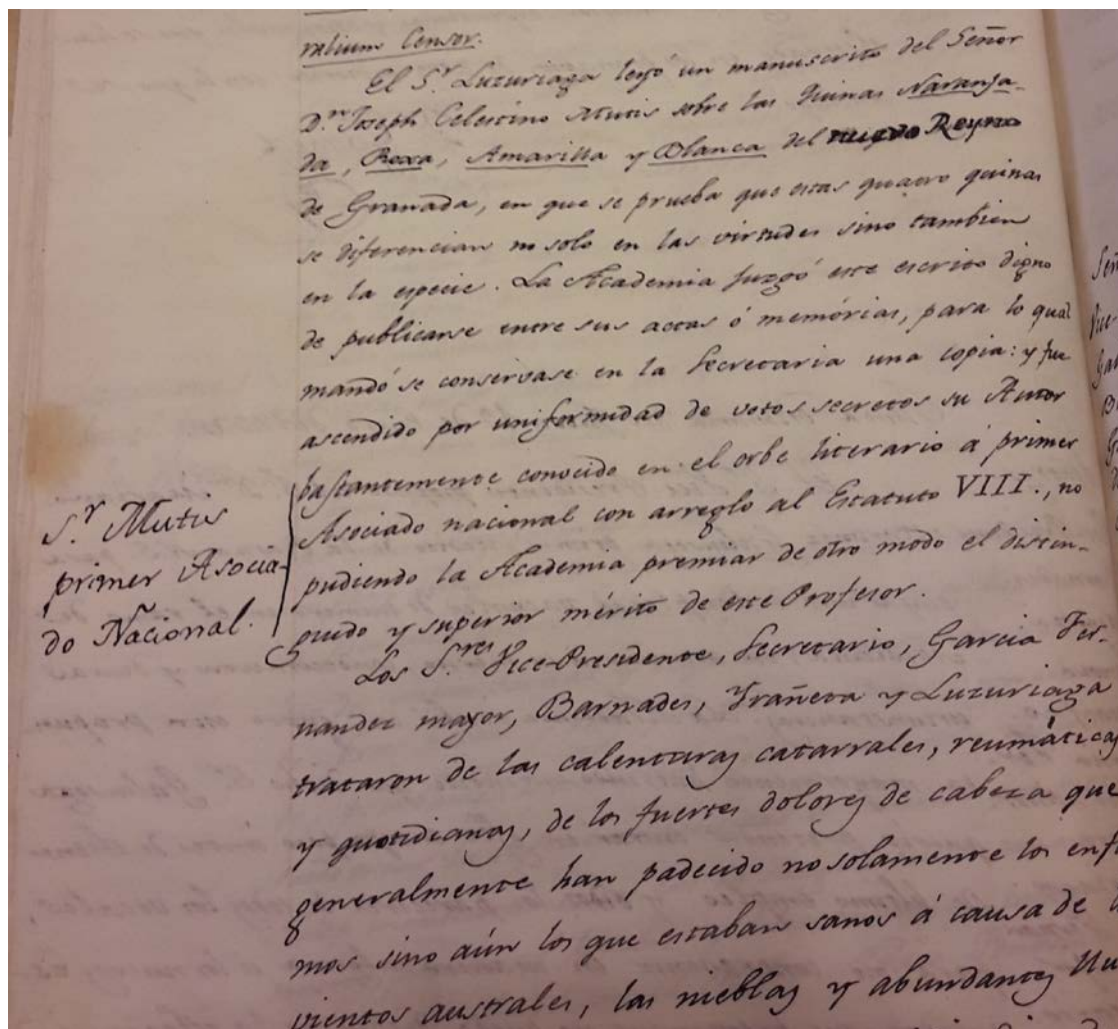 ralium Censor.
El S.r Luzuriaga leyó un manuscrito del Señor
D.n Joseph Celestino Mutis sobre las Quinas Naranja-
da, Roxa, Amarilla y Blanca del nuevo Reyno
de Granada, en que se prueba que estas quatro quinas
se diferencian no solo en las virtudes sino tambien
en la especie. La Academia juzgó este escrito digno
de publicarse entre sus actas ó memórias, para lo qual
mandó se conservase en la Secretaria una copia: y fue
ascendido por uniformidad de votos secretos su Autor
bastantemente conocido en el orbe literario á primer
Asociado nacional con arreglo al Estatuto VIII., no
pudiendo la Academia premiar de otro modo el distin-
guido y superior mérito de este Profesor.
S.r Mutis
primer Asocia-
do Nacional.
Los S.res Vice-Presidente, Secretario, Garcia Fer-
nandez mayor, Barnades, Yrañeta y Luzuriaga
trataron de las calenturas catarrales, reumáticas
y quotidianas, de los fuertes dolores de cabeza que
generalmente han padecido no solamente los enfer
mos sino aún los que estaban sanos á causa de
vientos australes, las nieblas y abundantes